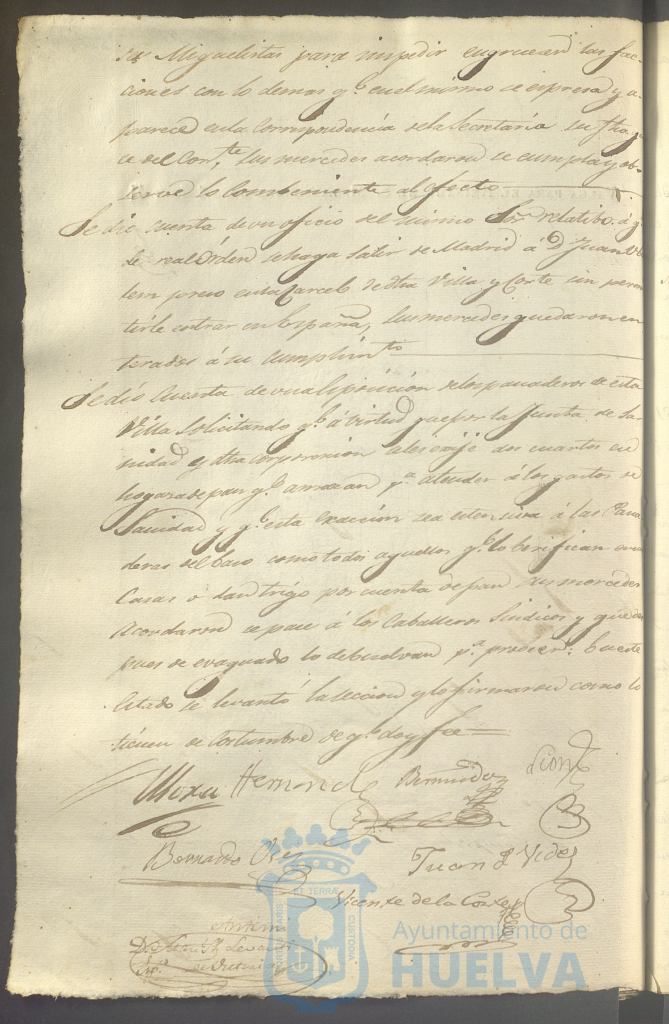 Miguelistas para impedir engruesen las fac-
ciones con lo demas q.e en el mismo se expresa y a-
parece en la Correspondencia de la Secretaría su fha
se del Cor.te sus mercedes acordaron se cumpla y ob-
serve lo Combeniente al efecto
Se dio cuenta de un oficio del mismo Sor. relatibo á q.
de real Orden se haga salir de Madrid á D. Juan
preso en la Carcel de dha Villa y Corte sin permi
tirle entrar en España, sus mercedes quedaron en
terados á su cumplim.to
Se dió cuenta de una Esposicion de los panaderos de esta
Villa Solicitando q.e á virtud que por la Junta de Sa-
nidad y dha Corporacion se les exije dos cuartos en
hogaza de pan q.e amasan p.a atender á los gastos de
Sanidad y q.e esta Exaccion sea estensiva á las Pana
deras del baso como todos aquellos q.e lo berifican en sus
Casas ó dan trigo por cuenta de pan sus mercedes
Acordaron se pase á los Caballeros Sindicos y que des
pues de evaquado lo debuelvan p.a probeer: En este
Estado se levantó la seccion y lo firmaron como lo
tienen de Costumbre de q.e doy fee
Mora Hernand Bermudez
Bernardo Juan J. Vides
Vicente de la Corte
Antemi
ET TERRAE
CUSTODIA
Ayuntamiento de
HUELVA